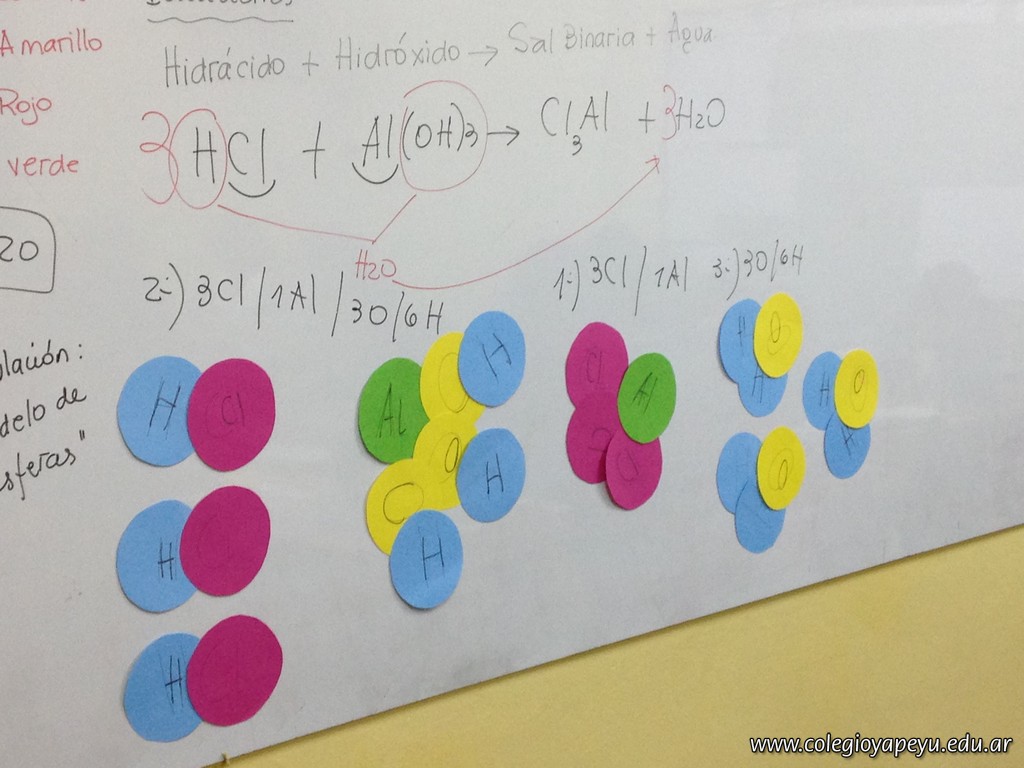 Amarillo
Rojo
verde
Hidrácido + Hidróxido → Sal Binaria + Agua
3 HCl + Al(OH)3 → Cl3Al + 3H2O
H2O
2-) 3Cl / 1Al / 3O / 6H
1-) 3Cl / 1Al
3-) 3O / 6H
20
H Cl
Al O H
O H
O H
H
H
Cl Al
H O
H
H O
O
www.colegioyapeyu.edu.ar